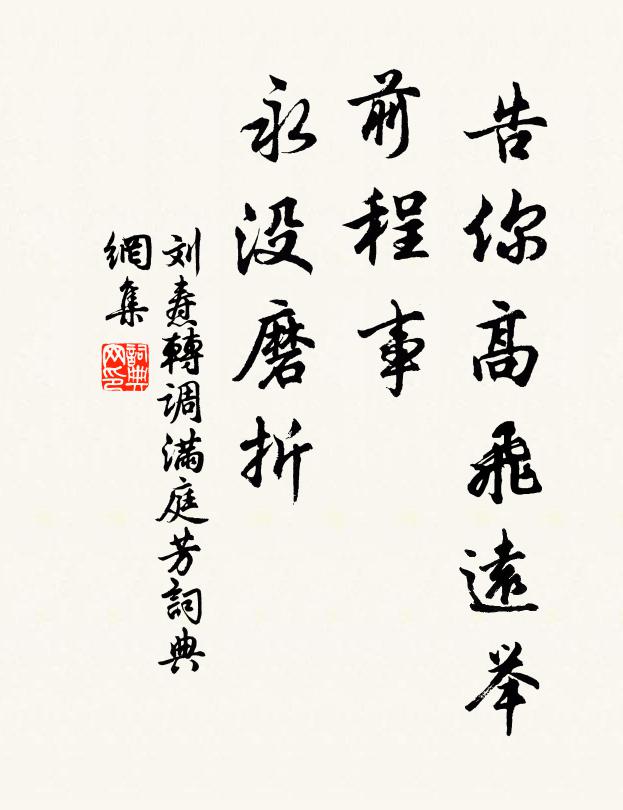 告你高飛遠举
前程事
永没磨折
刘焘轉调满庭芳詞典
網集
詞典
网印